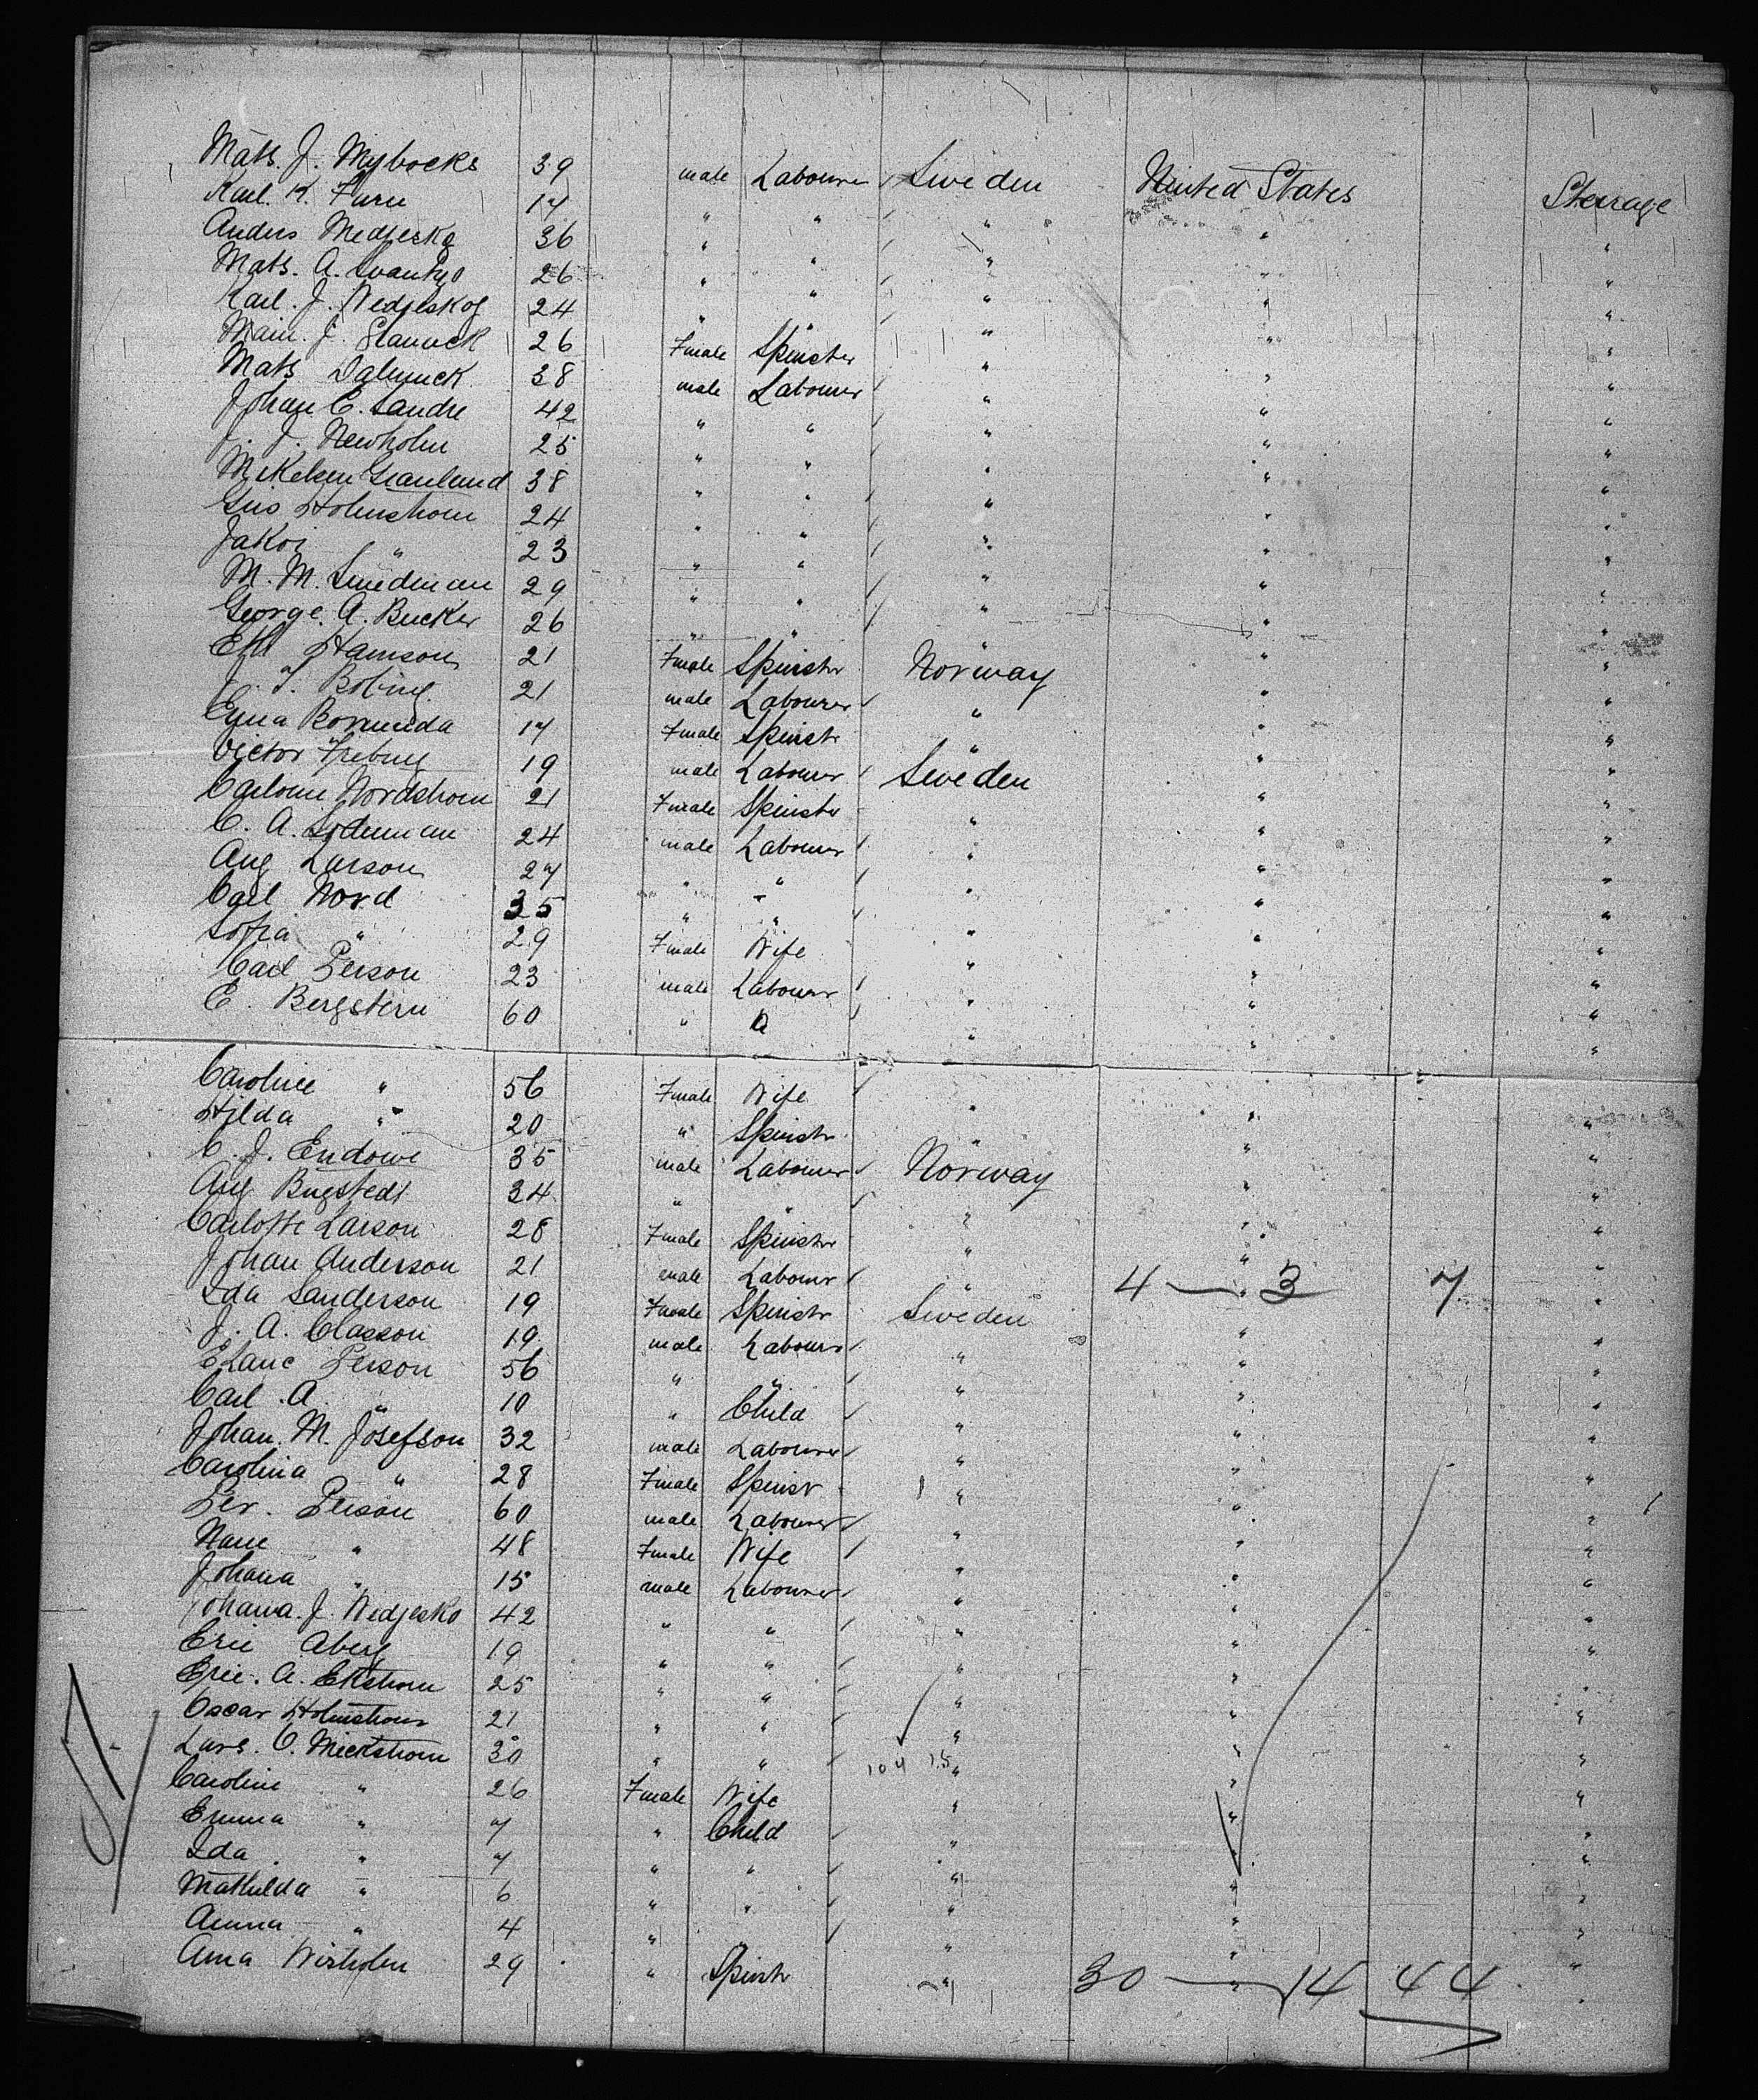 Mats. J. Mybocks 39 male Labourer Sweden United States Sterrage
Karl. K. Furu 17 " " " " "
Anders Medjeskg 36 " " " " "
Mats. A. 26 " " " " "
Karl. J. Wedjeskog 24 " " " " "
J. 26 Fmale Spinster " " "
Mats 38 male Labourer " " "
Johan C. Sandre 42 " " " " "
J. J. Newholm 25 " " " " "
Mikelsen Granlund 38 " " " " "
Gus Holmstrom 24 " " " " "
Jakoi " 23 " " " " "
M. M. 29 " " " " "
George. A. Bucker 26 " " " " "
21 Fmale Spinstr Norway " "
J. 21 male Labourer " " "
17 Fmale Spinstr " " "
Victor 19 male Labourer Sweden " "
Nordstrom 21 Fmale Spinster " " "
C. A. 24 male Labourer " " "
Aug Larson 27 " " " " "
Carl Nord 35 " " " " "
Sofia " 29 Fmale Wife " " "
Carl Person 23 male Labourer " " "
E. Bergstern 60 " " " " "
Caroline " 56 Fmale Wife " " "
Hilda " 20 " Spinstr " " "
C. J. Endowe 35 male Labourer Norway " "
Aug Bugstedt 34 " " " " "
Carlotte Larson 28 Fmale Spinster " " "
Johan Anderson 21 male Labourer " " "
4 — 3 7
Ida Sanderson 19 Fmale Spinstr Sweden " "
J. A. Classon 19 male Labourer " " "
Person 56 " " " " "
Carl. A. " 10 " Child " " "
Johan. M. Josefson 32 male Labourer " " "
Carolina " 28 Fmale Spinstr " " "
Per. Person 60 male Labourer " " "
" 48 Fmale Wife " " "
Johana " 15 male Labourer " " "
Johana. J. Wedjesko 42 " " " " "
Eric Aberg 19 " " " " "
Eric. A. Ekstrom 25 " " " " "
Oscar Holmstrom 21 " " " " "
Lars. O. Mickstrom 30 " " " " "
Caroline " 26 Fmale Wife " " "
Emma " 7 " Child " " "
Ida " 7 " " " " "
Mathilda " 6 " " " " "
Anna " 4 " " " " "
Ana 29 " Spinstr " " "
30 — 14 44